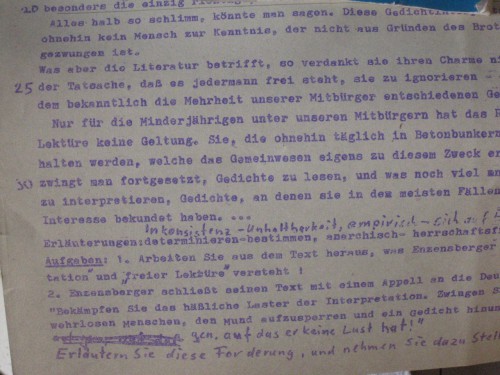 20 besonders die einzig
Alles halb so schlimm, könnte man sagen. Diese
ohnehin kein Mensch zur Kenntnis, der nicht aus Gründen des Brot
gezwungen ist.
Was aber die Literatur betrifft, so verdankt sie ihren Charme ni
25 der Tatsache, daß es jedermann frei steht, sie zu ignorieren -
dem bekanntlich die Mehrheit unserer Mitbürger entschiedenen Ge
Nur für die Minderjährigen unter unseren Mitbürgern hat das R
Lektüre keine Geltung. Sie, die ohnehin täglich in Betonbunkern
halten werden, welche das Gemeinwesen eigens zu diesem Zweck er
30 zwingt man fortgesetzt, Gedichte zu lesen, und was noch viel
zu interpretieren, Gedichte, an denen sie in den meisten Fällen
Interesse bekundet haben. ...
Inkonsistenz - Unhaltbarkeit, empirisch - sich auf
Erläuterungen:determinieren-bestimmen, anarchisch- herrschaftsf
Aufgaben: 1. Arbeiten Sie aus dem Text heraus, was Enzensberger
tation" und "freier Lektüre" versteht !
2. Enzensberger schließt seinen Text mit einem Appell an die
"Bekämpfen Sie das häßliche Laster der Interpretation. Zwingen S
wehrlosen Menschen, den Mund aufzusperren und ein Gedicht hinun
gen, auf das er keine Lust hat!"
Erläutern Sie diese Forderung, und nehmen Sie dazu Stell